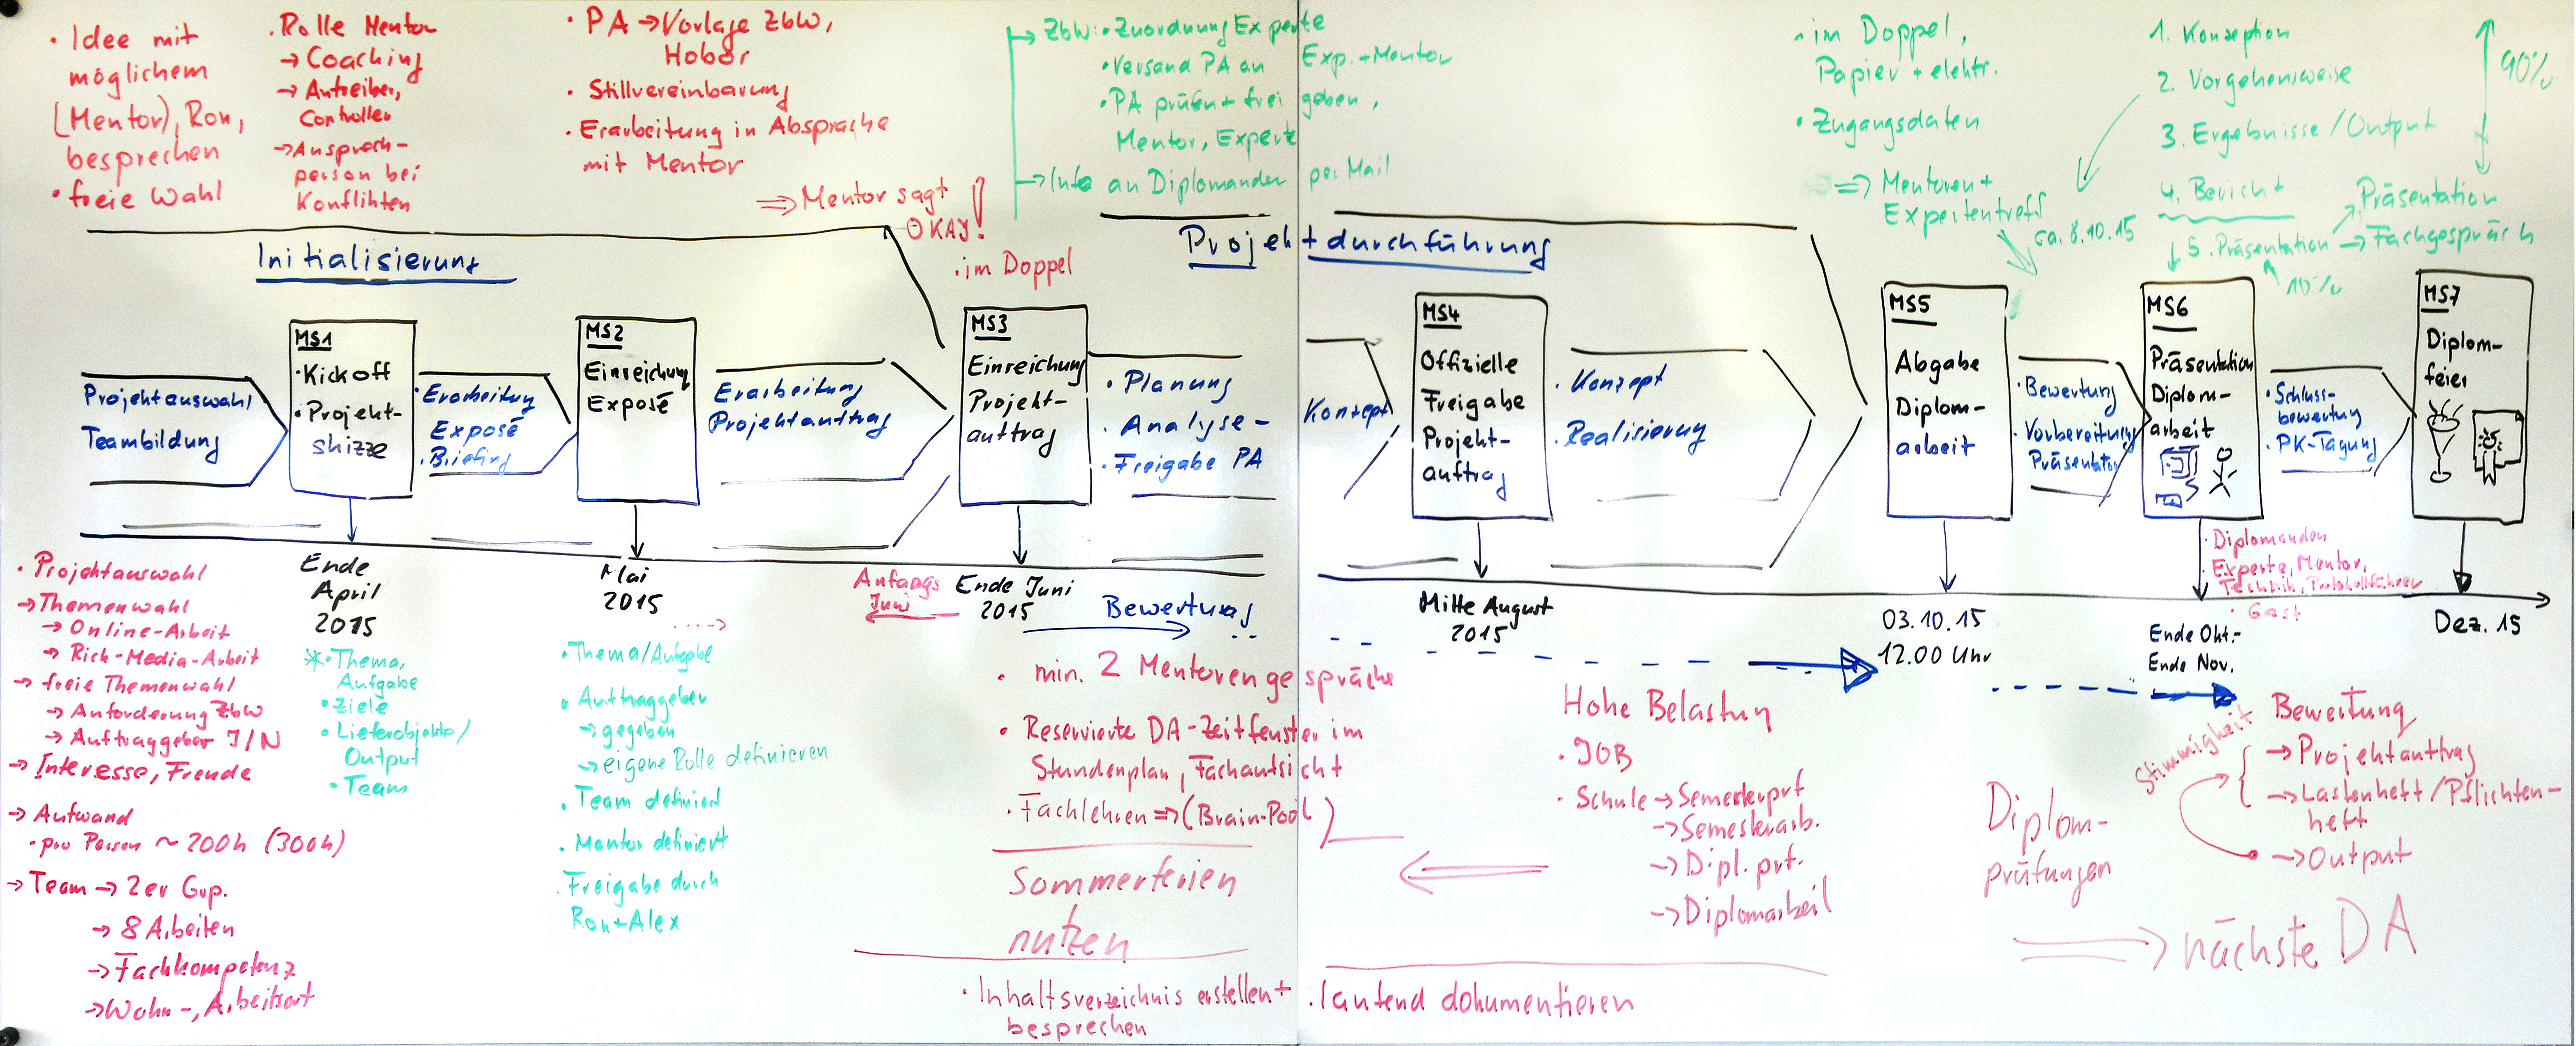 · Idee mit
möglichem
(Mentor), Ron,
besprechen
· freie Wahl
· Rolle Mentor
→ Coaching
→ Antreiber,
Controller
→ Ansprech-
person bei
Konflikten
· PA → Vorlage ZbW,
Hobor
· Stillvereinbarung
· Erarbeitung in Absprache
mit Mentor
⇒ Mentor sagt
OKAY!
· im Doppel
→ ZbW: · Zuordnung Experte
· Versand PA an Exp. + Mentor
· PA prüfen + frei geben,
Mentor, Experte
→ Info an Diplomanden per Mail
· im Doppel,
Papier + elektr.
· Zugangsdaten
⇒ Mentoren +
Expertentreff
ca. 8.10.15
1. Konzeption
2. Vorgehensweise
3. Ergebnisse / Output
4. Bericht
5. Präsentation
→ Präsentation
→ Fachgespräch
90%
10%
Initialisierung
Projektdurchführung
Projektauswahl
Teambildung
MS1
· Kick off
· Projekt-
skizze
· Erarbeitung
Exposé
· Briefing
MS2
Einreichung
Exposé
Erarbeitung
Projektauftrag
MS3
Einreichung
Projekt-
auftrag
· Planung
· Analyse -
· Freigabe PA
Konzept
MS4
Offizielle
Freigabe
Projekt-
auftrag
· Konzept
· Realisierung
MS5
Abgabe
Diplom-
arbeit
· Bewertung
· Vorbereitung
Präsentation
MS6
Präsentation
Diplom-
arbeit
· Schluss-
bewertung
· PK-Tagung
MS7
Diplom-
feier
Ende
April
2015
Mai
2015
Anfangs
Juni
Ende Juni
2015
Bewertung
Mitte August
2015
03.10.15
12.00 Uhr
Ende Okt.-
Ende Nov.
Dez. 15
· Diplomanden
· Experte, Mentor,
Technik, Protokollführer
· Gast
· Projektauswahl
→ Themenwahl
→ Online-Arbeit
→ Rich-Media-Arbeit
→ freie Themenwahl
→ Anforderung ZbW
→ Auftraggeber J/N
→ Interesse, Freude
→ Aufwand
· pro Person ~ 200h (300h)
→ Team → 2er Grp.
→ 8 Arbeiten
→ Fachkompetenz
→ Wohn-, Arbeitsort
* · Thema,
Aufgabe
· Ziele
· Lieferobjekte/
Output
· Team
· Thema/Aufgabe
· Auftraggeber
→ gegeben
→ eigene Rolle definieren
· Team definiert
· Mentor definiert
· Freigabe durch
Ron + Alex
· min. 2 Mentorengespräche
· Reservierte DA-Zeitfenster im
Stundenplan, Fachaufsicht
· Fachlehren ⇒ (Brain-Pool)
Sommerferien
nutzen
· Inhaltsverzeichnis erstellen +
besprechen
· laufend dokumentieren
Hohe Belastung
· JOB
· Schule → Semesterprf
→ Semesterarb.
→ Dipl. prf.
→ Diplomarbeit
Diplom-
prüfungen
⇒ nächste DA
Stimmigkeit
Bewertung
→ Projektauftrag
→ Lastenheft / Pflichten-
heft
→ Output